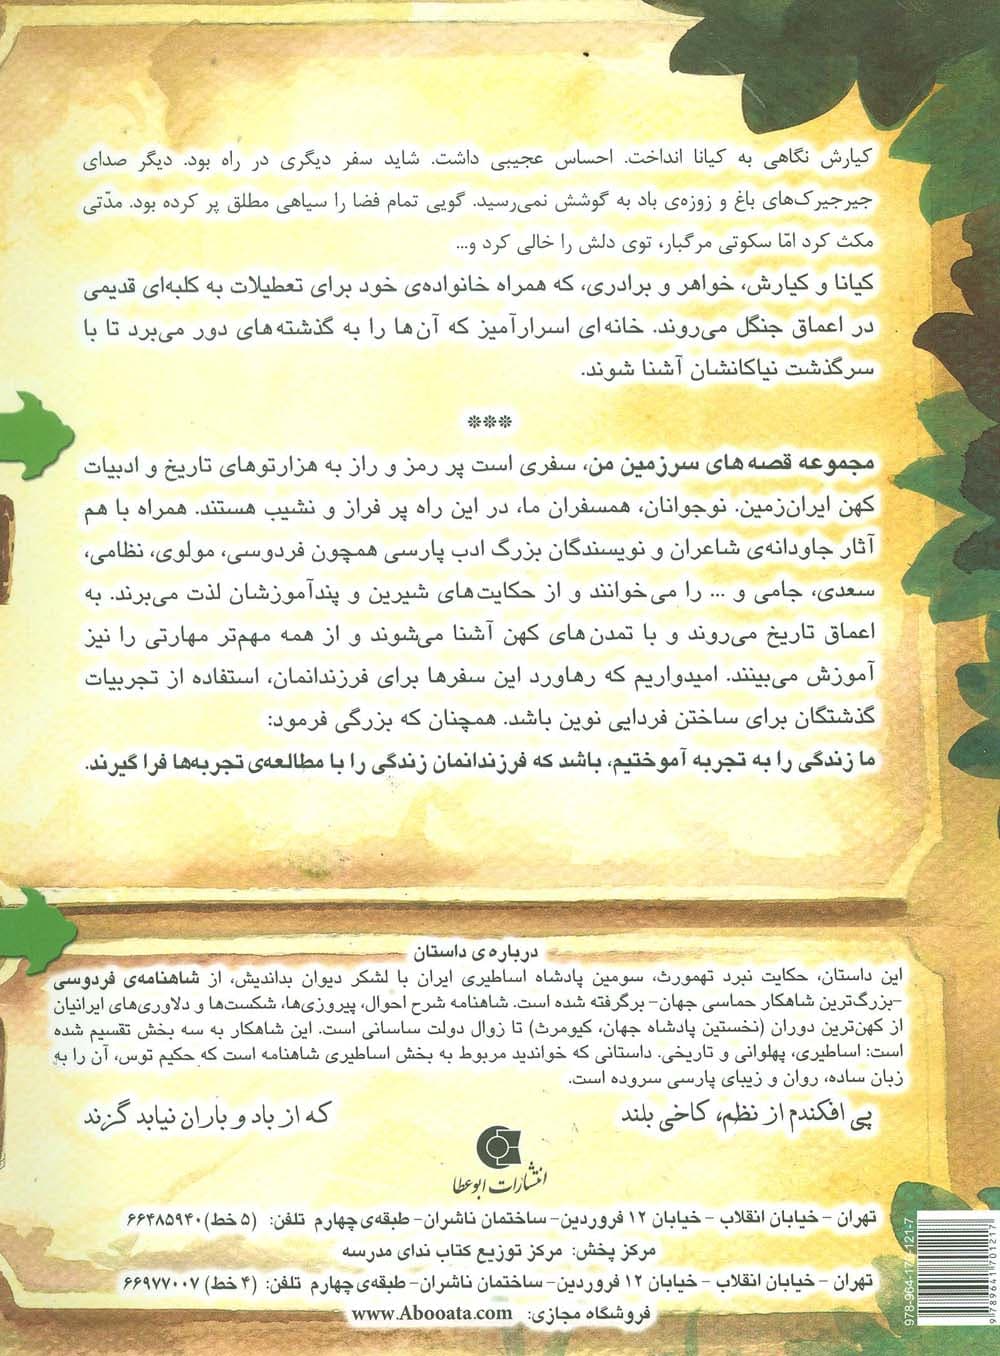 کیارش نگاهی به کیانا انداخت. احساس عجیبی داشت. شاید سفر دیگری در راه بود. دیگر صدای
جیرجیرک‌های باغ و زوزه‌ی باد به گوشش نمی‌رسید. گویی تمام فضا را سیاهی مطلق پر کرده بود. مدّتی
مکث کرد امّا سکوتی مرگبار، توی دلش را خالی کرد و...
کیانا و کیارش، خواهر و برادری، که همراه خانواده‌ی خود برای تعطیلات به کلبه‌ای قدیمی
در اعماق جنگل می‌روند. خانه‌ای اسرارآمیز که آن‌ها را به گذشته‌های دور می‌برد تا با
سرگذشت نیاکانشان آشنا شوند.
***
مجموعه قصه‌های سرزمین من، سفری است پر رمز و راز به هزارتوهای تاریخ و ادبیات
کهن ایران‌زمین. نوجوانان، همسفران ما، در این راه پر فراز و نشیب هستند. همراه با هم
آثار جاودانه‌ی شاعران و نویسندگان بزرگ ادب پارسی همچون فردوسی، مولوی، نظامی،
سعدی، جامی و ... را می‌خوانند و از حکایت‌های شیرین و پندآموزشان لذت می‌برند. به
اعماق تاریخ می‌روند و با تمدن‌های کهن آشنا می‌شوند و از همه مهم‌تر مهارتی را نیز
آموزش می‌بینند. امیدواریم که رهاورد این سفرها برای فرزندانمان، استفاده از تجربیات
گذشتگان برای ساختن فردایی نوین باشد. همچنان که بزرگی فرمود:
ما زندگی را به تجربه آموختیم، باشد که فرزندانمان زندگی را با مطالعه‌ی تجربه‌ها فرا گیرند.
درباره‌ی داستان
این داستان، حکایت نبرد تهمورث، سومین پادشاه اساطیری ایران با لشکر دیوان بداندیش، از شاهنامه‌ی فردوسی
-بزرگ‌ترین شاهکار حماسی جهان- برگرفته شده است. شاهنامه شرح احوال، پیروزی‌ها، شکست‌ها و دلاوری‌های ایرانیان
از کهن‌ترین دوران (نخستین پادشاه جهان، کیومرث) تا زوال دولت ساسانی است. این شاهکار به سه بخش تقسیم شده
است: اساطیری، پهلوانی و تاریخی. داستانی که خواندید مربوط به بخش اساطیری شاهنامه است که حکیم توس، آن را به
زبان ساده، روان و زیبای پارسی سروده است.
پی افکندم از نظم، کاخی بلند که از باد و باران نیابد گزند
انتشارات ابوعطا
تهران - خیابان انقلاب - خیابان ۱۲ فروردین- ساختمان ناشران- طبقه‌ی چهارم تلفن: (۵ خط) ۶۶۴۸۵۹۴۰
مرکز پخش: مرکز توزیع کتاب ندای مدرسه
تهران - خیابان انقلاب - خیابان ۱۲ فروردین- ساختمان ناشران- طبقه‌ی چهارم تلفن: (۴ خط) ۶۶۹۷۷۰۰۷
فروشگاه مجازی: www.Abooata.com
978-964-170-121-7
9789641701217